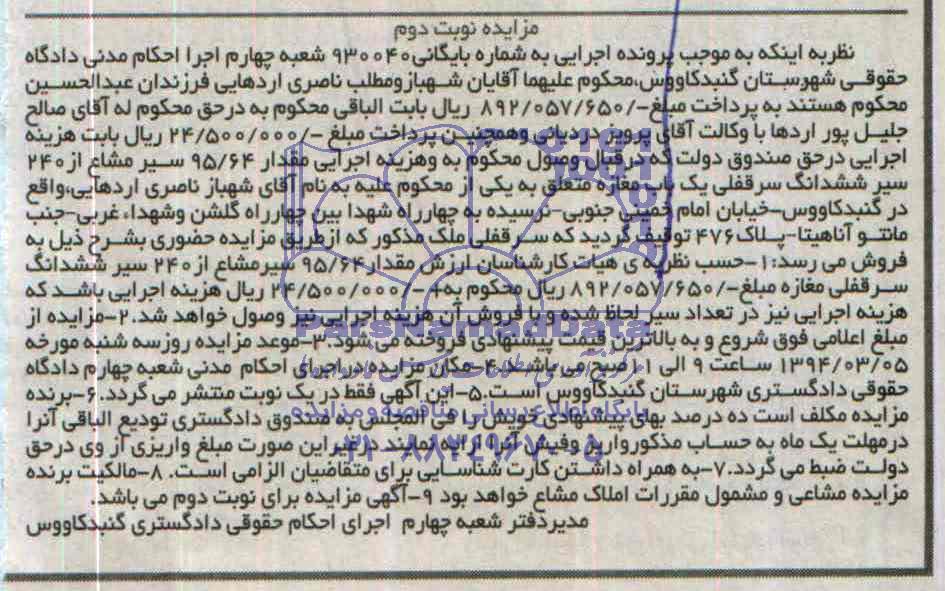 مزایده نوبت دوم
نظربه اینکه به موجب پرونده اجرایی به شماره بایگانی۹۳۰۰۴۰ شعبه چهارم اجرا احکام مدنی دادگاه
حقوقی شهرستان گنبدکاووس،محکوم علیهما آقایان شهبازومطلب ناصری اردهایی فرزندان عبدالحسین
محکوم هستند به پرداخت مبلغ-/۸۹۲/۰۵۷/۶۵۰ ریال بابت الباقی محکوم به درحق محکوم له آقای صالح
جلیل پور اردها با وکالت آقای پرویز دردیانی وهمچنین پرداخت مبلغ -/۲۴/۵۰۰/۰۰۰ ریال بابت هزینه
اجرایی درحق صندوق دولت که درقبال وصول محکوم به وهزینه اجرایی مقدار ۹۵/۶۴ سیر مشاع از۲۴۰
سیر ششدانگ سرقفلی یک باب مغازه متعلق به یکی از محکوم علیه به نام آقای شهباز ناصری اردهایی،واقع
در گنبدکاووس-خیابان امام خمینی جنوبی-نرسیده به چهارراه شهدا بین چهارراه گلشن وشهدا، غربی-جنب
مانتو آناهیتا-پلاک۴۷۶ توقیف گردید که سرقفلی ملک مذکور که ازطریق مزایده حضوری بشرح ذیل به
فروش می رسد:۱-حسب نظریه ی هیات کارشناسان ارزش مقدار۹۵/۶۴ سیرمشاع از۲۴۰ سیر ششدانگ
سرقفلی مغازه مبلغ-/۸۹۲/۰۵۷/۶۵۰ ریال محکوم به+-/۲۴/۵۰۰/۰۰۰ ریال هزینه اجرایی باشد که
هزینه اجرایی نیز در تعداد سیر لحاظ شده و با فروش آن هزینه اجرایی نیز وصول خواهد شد.۲-مزایده از
مبلغ اعلامی فوق شروع و به بالاترین قیمت پیشنهادی فروخته می شود.۳-موعد مزایده روزسه شنبه مورخه
۱۳۹۴/۰۳/۰۵ ساعت ۹ الی صبح می باشد.۴-مکان مزایده دراجرای احکام مدنی شعبه چهارم دادگاه
حقوقی دادگستری شهرستان گنبدکاووس است.۵-این آگهی فقط در یک نوبت منتشر می گردد.۶-برنده
مزایده مکلف است ده درصد بهای پیشنهادی خویش را فی المجلس به صندوق دادگستری تودیع الباقی آنرا
درمهلت یک ماه به حساب مذکورواریز وفیش آنرا ارایه نمایند در غیراین صورت مبلغ واریزی از وی درحق
دولت ضبط می گردد.۷-به همراه داشتن کارت شناسایی برای متقاضیان الزامی است. ۸-مالکیت برنده
مزایده مشاعی و مشمول مقررات املاک مشاع خواهد بود ۹-آگهی مزایده برای نوبت دوم می باشد.
مدیردفتر شعبه چهارم اجرای احکام حقوقی دادگستری گنبدکاووس
ParsNamadData
پایگاه اطلاع رسانی مناقصه ومزایده
۰۲۱-۸۸۳۴۹۶۷۰-۵